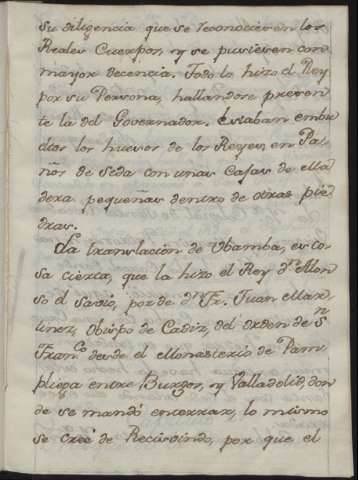 su diligencia que se reconociesen los
Reales Cuerpos, y se pusiesen con
mayor decencia. Todo lo hizo el Rey
por su Persona, hallandose presen
te la del Governador. Estaban embu
dtos los huesos de los Reyes, en Pa-
ños de seda con unas Cajas de Ma
dera pequeñas dentro de otras pie
dras.
La translacion de Vbamba, es co
sa cierta, que la hizo el Rey dn. Alon
so el savio, por dn. Fr. Juan Mar
tinez, Obispo de Cadiz, del orden de Sn.
Franco. desde el Monasterio de Pam
pliega entre Burgos, y Valladolid, don
de se mandó encerrar, lo mismo
se creé de Recisvindo, por que el